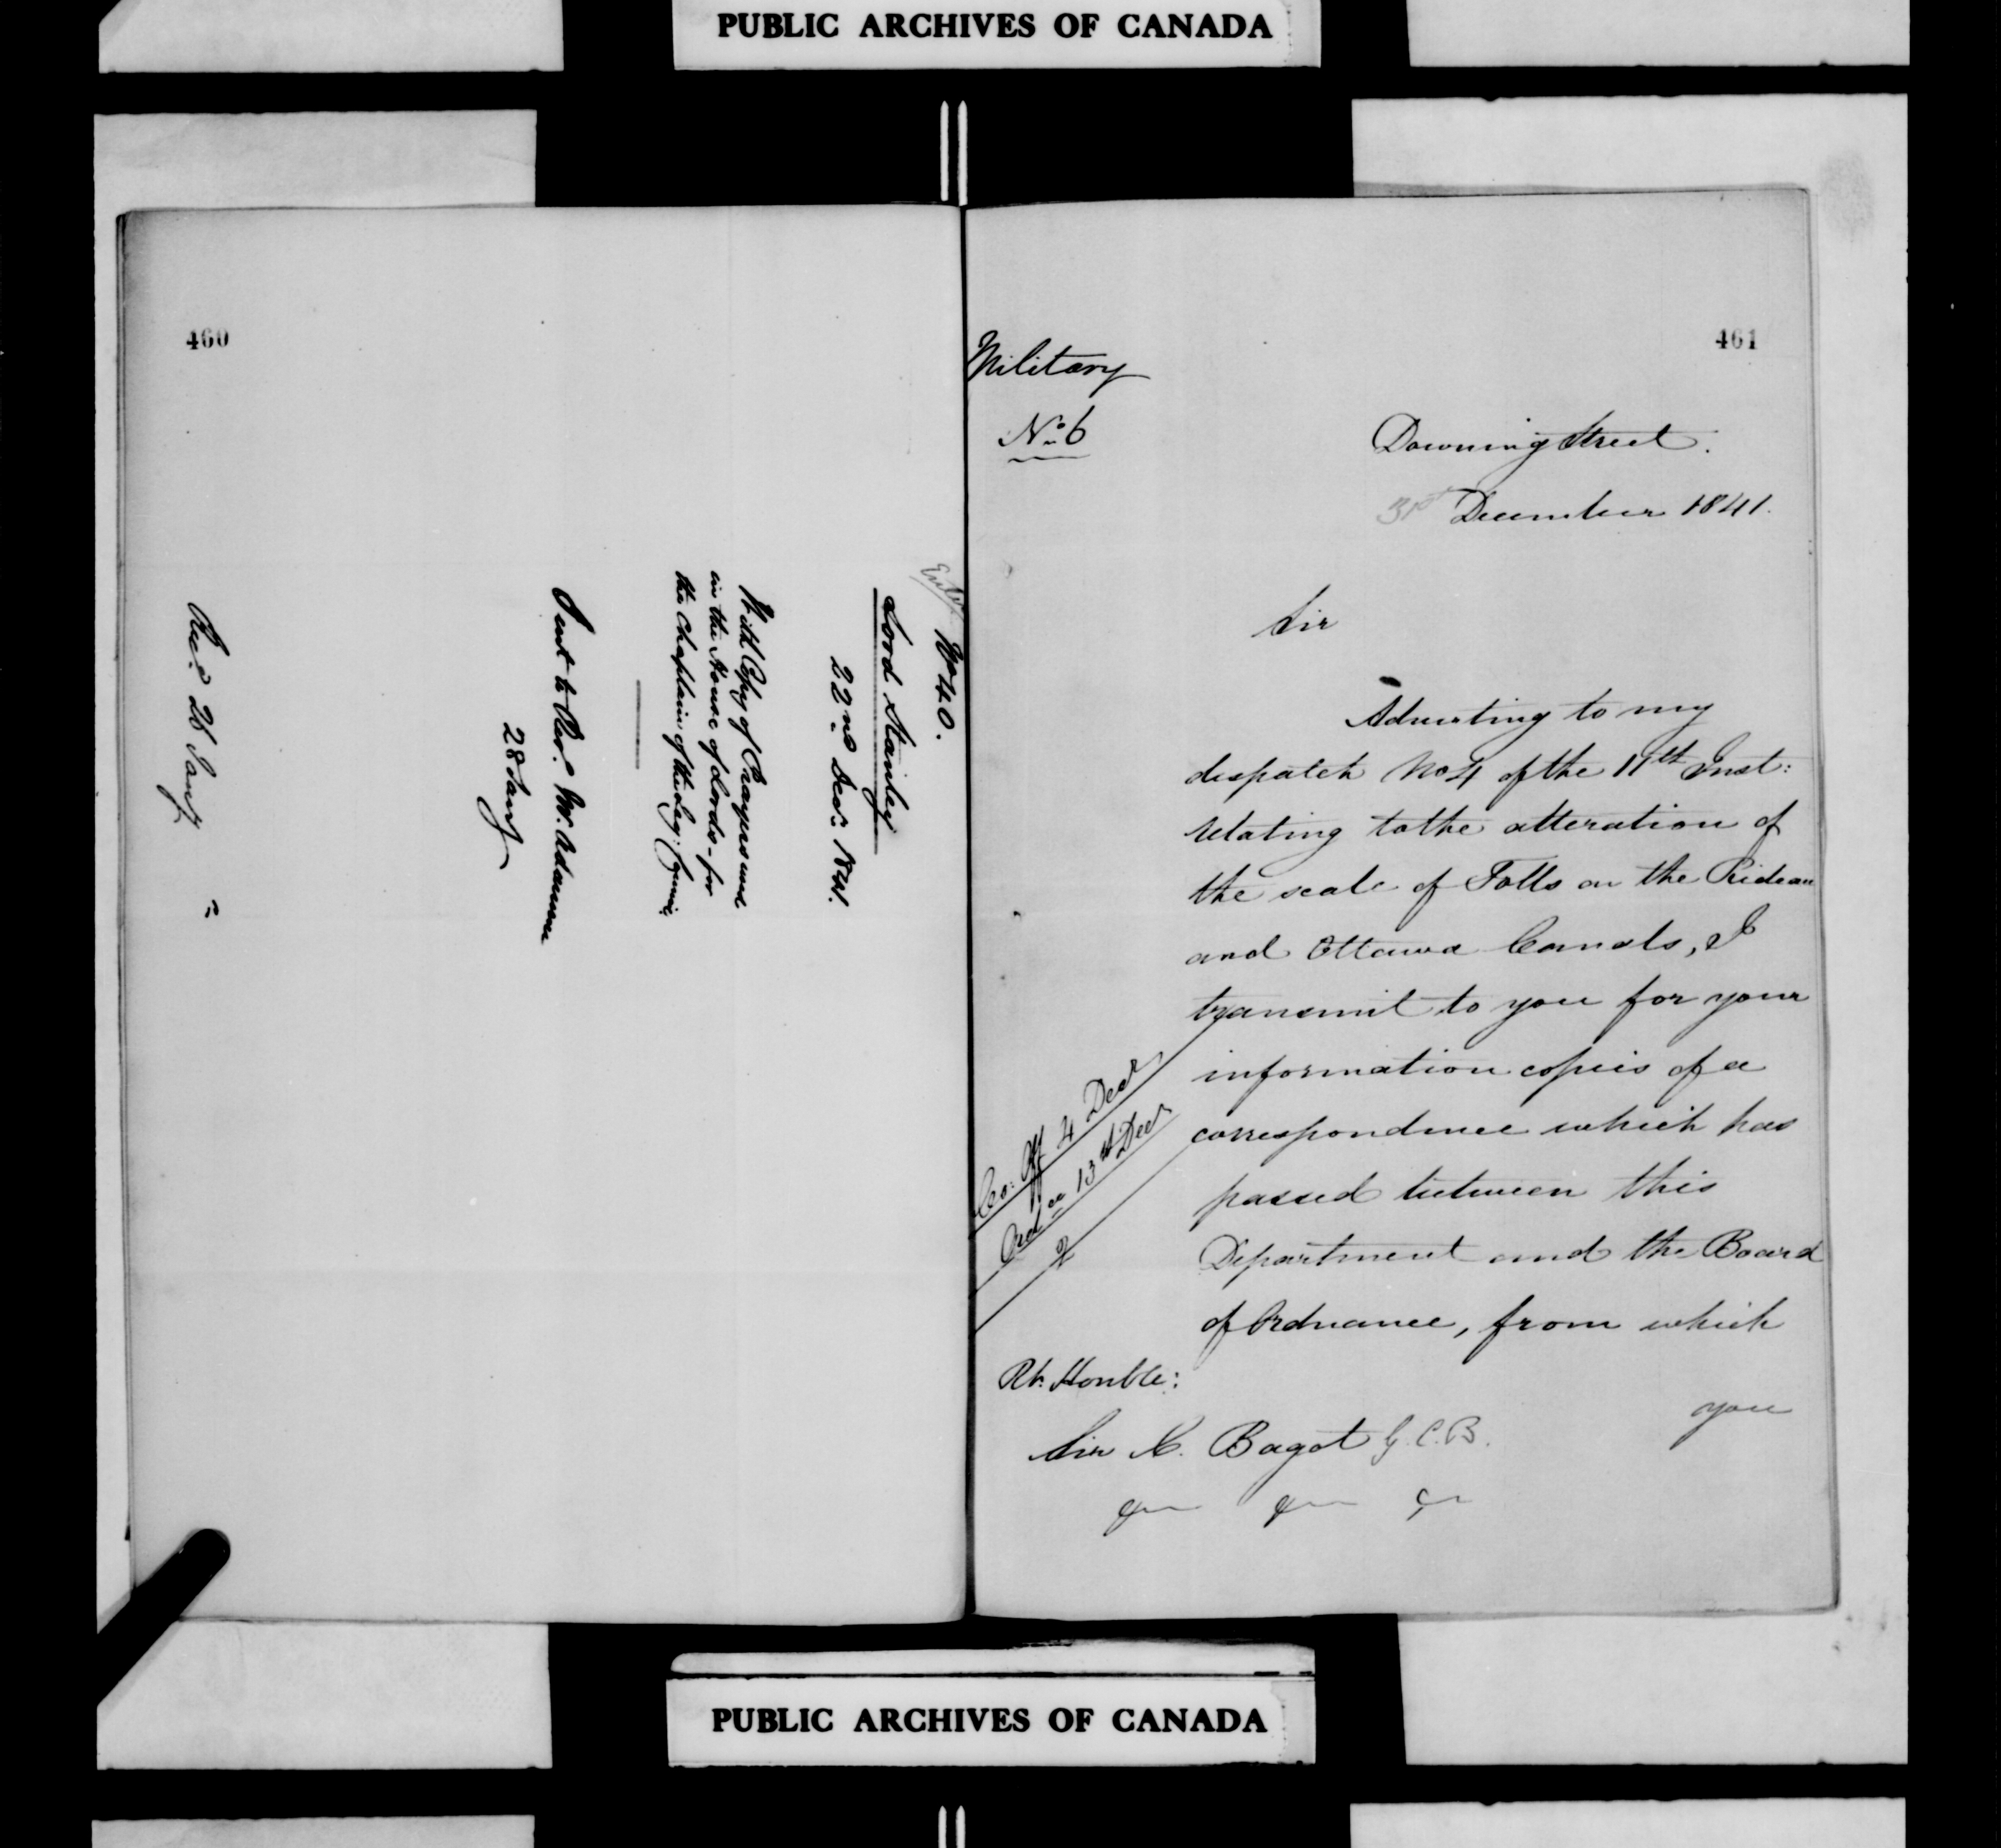 PUBLIC ARCHIVES OF CANADA
460
No 40.
Lord Stanley
22nd Decr. 1841.
With Copy of Prayers used
in the House of Lords - for
the Chaplain of the Leg: Counc.
Sent to Revd. W. Adamson
28 Jany
Recd 28 Jany
461
Military
No. 6
Downing Street.
31st December 1841.
Sir
Adverting to my
dispatch No 4 of the 11th Inst:
relating to the alteration of
the scale of Tolls on the Rideau
and Ottawa Canals, I
transmit to you for your
information copies of a
correspondence which has
passed between this
Department and the Board
of Ordnance, from which
you
Co: Off 4 Decr
Ordce 13th Decr
2
Rt. Honble:
Sir C. Bagot G.C.B.
&c &c &c
PUBLIC ARCHIVES OF CANADA